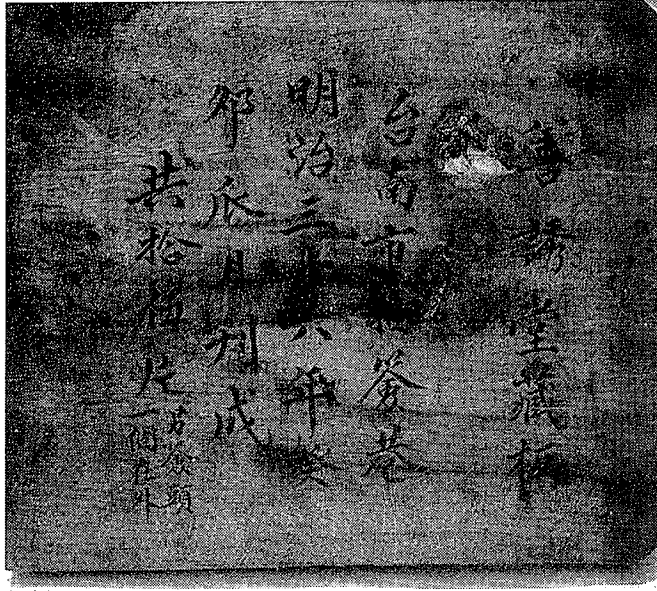 善誘堂藏板
台南市簽巷
明治三十六年癸
卯瓜月刊成
共拾伍片
另簽頭
一個在外